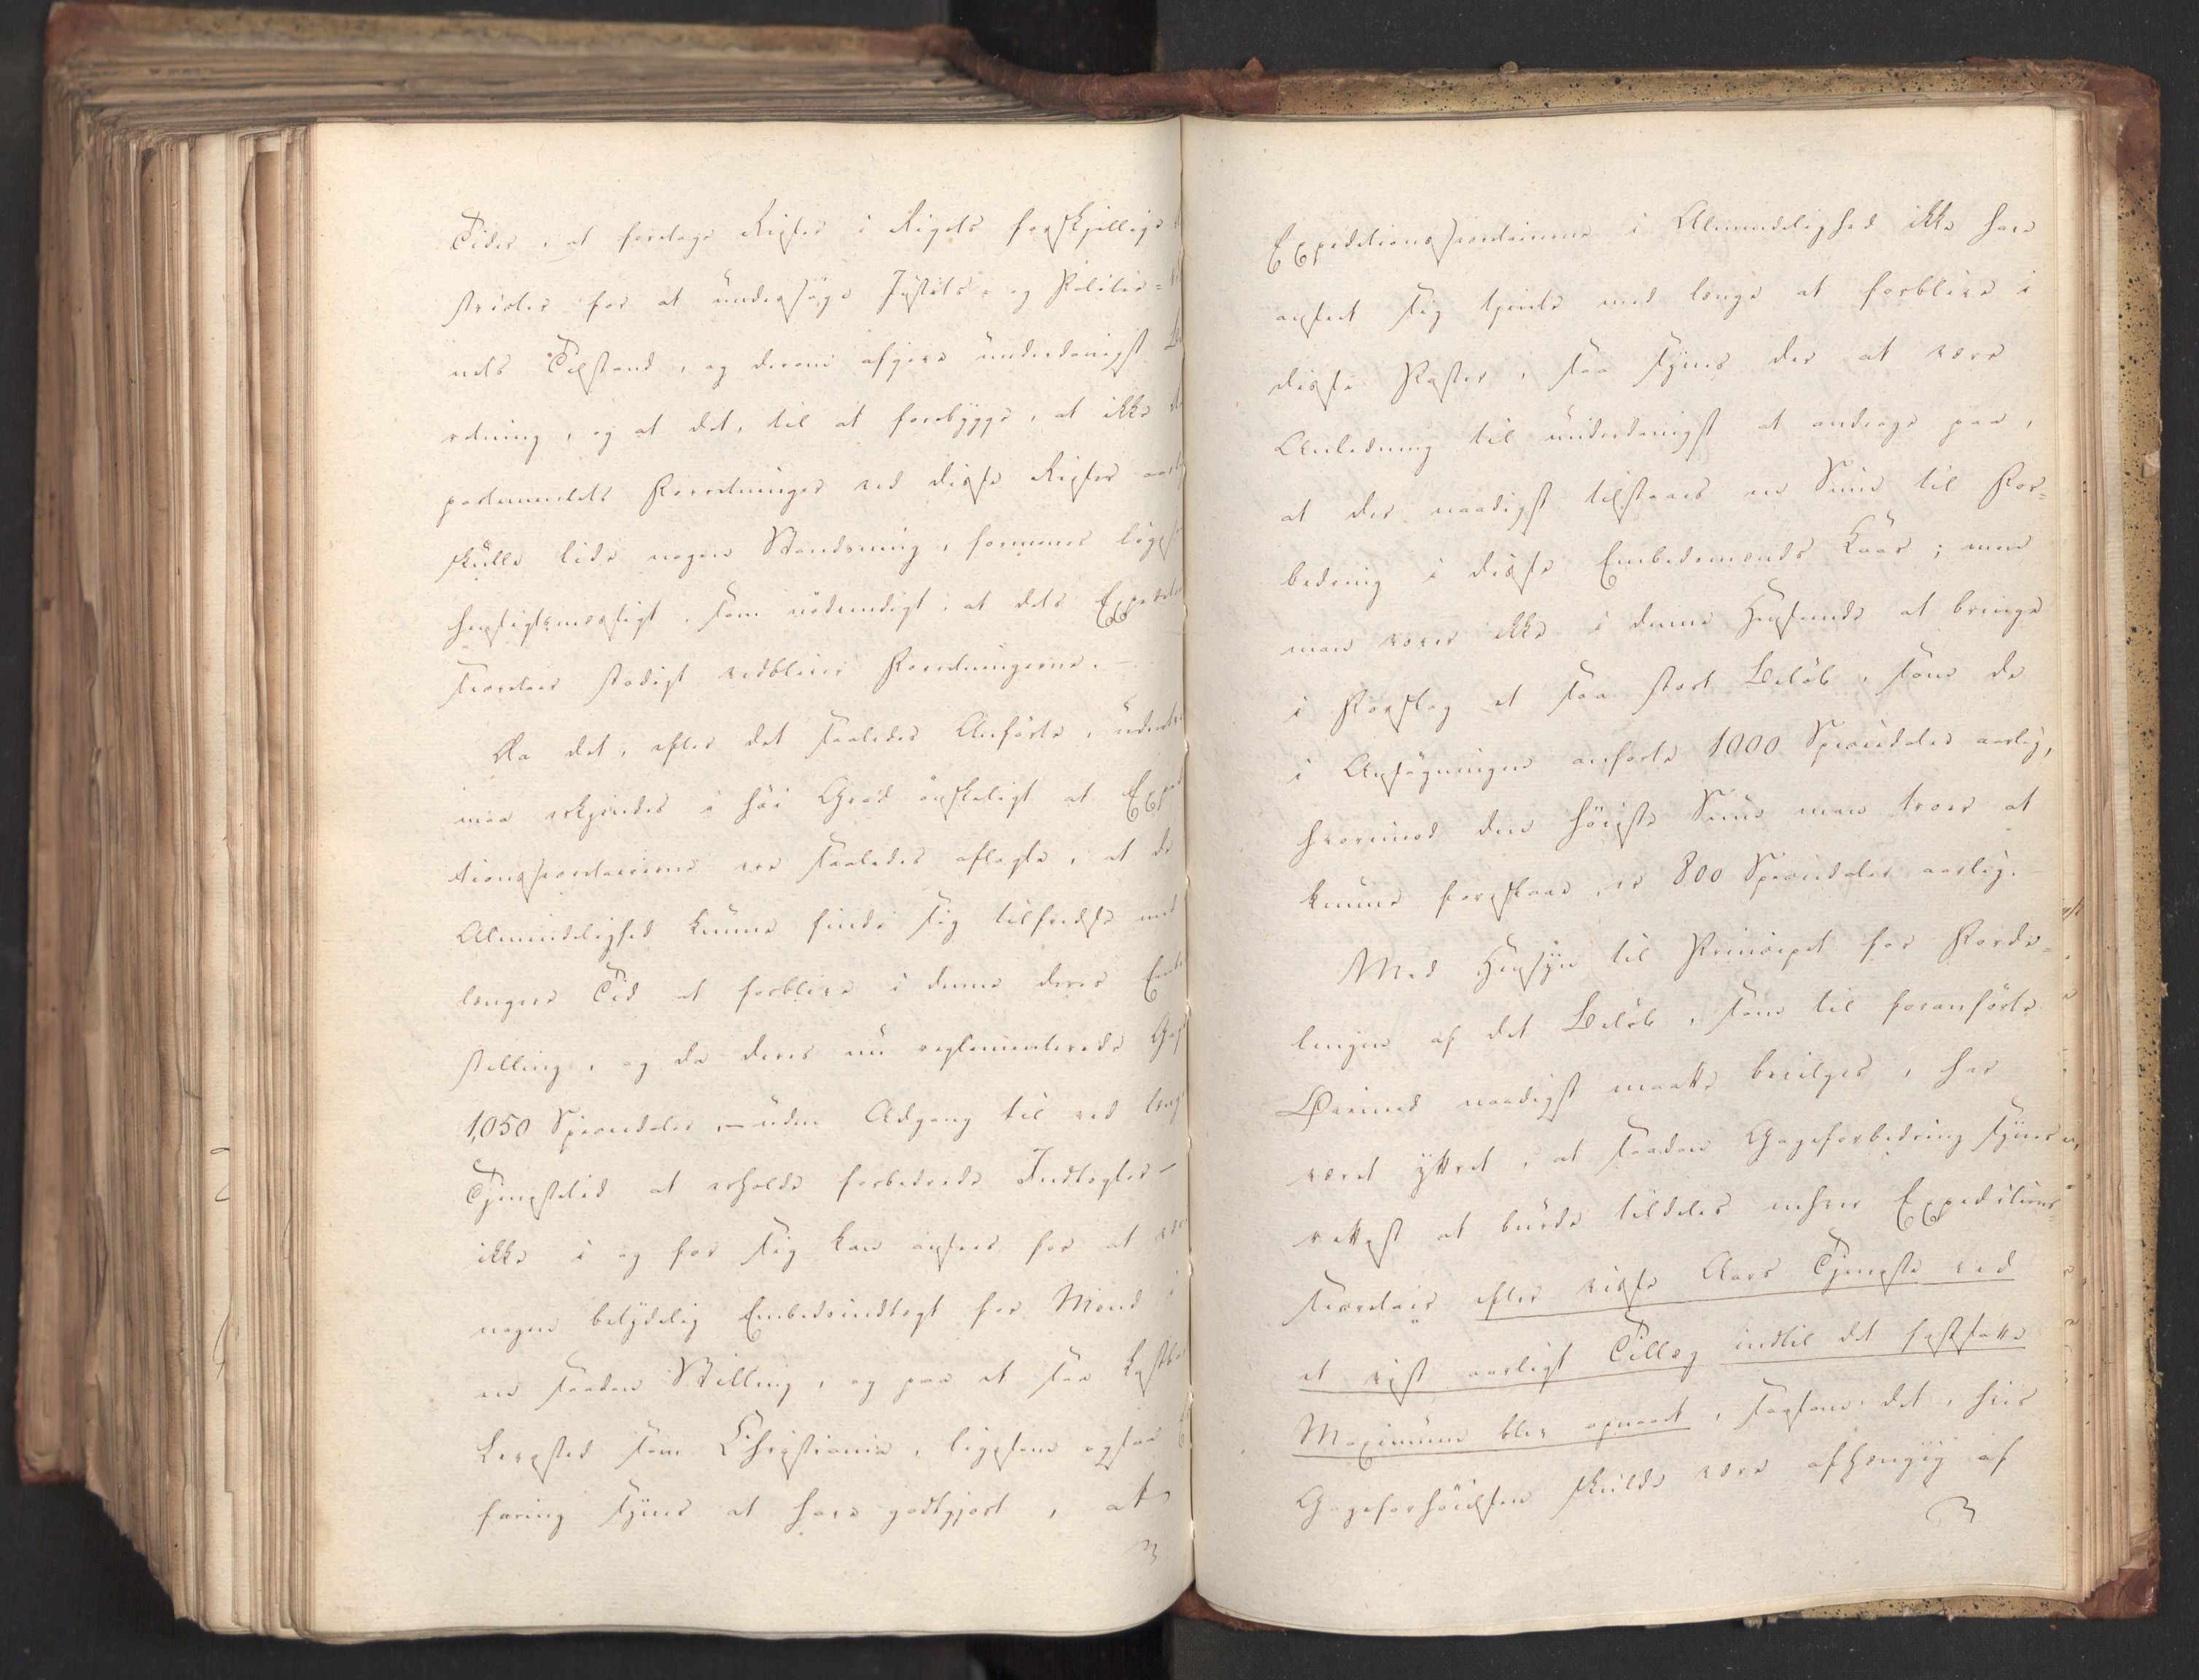 Tider, at foretage Reiser i Rigets forskjellige
stricter for at undersøge Justits- og Politie-
nets Tilstand, og derom afgive underdanigst
retning, og at det, til at forebygge, at ikke
partementets Forretninger ved disse Reiser
skulle lide nogen Standsning, formenes ligesaa
hensigtsmæssigt, som nødvendigt, at dets
stadigt vedbliver Forretningerne. —
Da det, efter det saaledes Anførte,
maa erkjendes i høi Grad ønskeligt at Expedi
tionssecretairerne ere saaledes aflagte, at de
Almindelighed kunne finde sig tilfredse med
længere Tid at forblive i denne deres
stilling, og da deres nu reglementerede Gage
1,050 Speciedaler, — uden Adgang til ved
Tjenestetid at erholde forbedrede Indtægter —
ikke i og for sig kan ansees for at være
nogen betydelig Embedsindtægt for Mænd i
en saadan Stilling, og paa et saa
som Christiania, ligesom ogsaa
faring synes at have godtgjort, at
Expeditionssecretairerne i Almindelighed ikke have
anseet sig tjente med længe at forblive i
disse Poster, saa synes der at være
Anledning til underdanigst at andrage paa,
at der naadigst tilstaaes en Sum til For=
bedring i disse Embedsmænds Kaar; men
man vover ikke i denne Henseende at bringe
i Forslag et saa stort Beløb, som de
i Ansøgningen anførte 1000 Speciedaler aarlig,
hvorimod den høieste Sum man troer at
kunne foreslaae, er 800 Speciedaler aarlig. —
Med Hensyn til Principet for Forde=
lingen af det Beløb, som til foranførte
Øiemed naadigst maatte bevilges, har
været yttret, at saadan Gageforbedring synes
rettest at burde tildeles enhver Expeditions=
secretair efter visse Aars Tjeneste ved
et vist aarligt Tillæg indtil det fastsatte
Maximum blev opnaaet, saasom det, hvis
Gageforhøielsen skulde være afhængig af